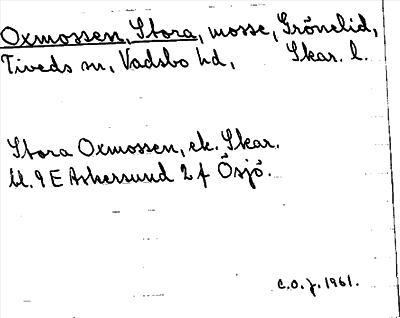 Oxmossen, Stora, mosse, Grönelid,
Tiveds sn, Vadsbo hd, Skar. l.
Stora Oxmossen, ek. Skar.
bl. 9 E Askersund 2 f Ösjö.
C.O.J. 1961.